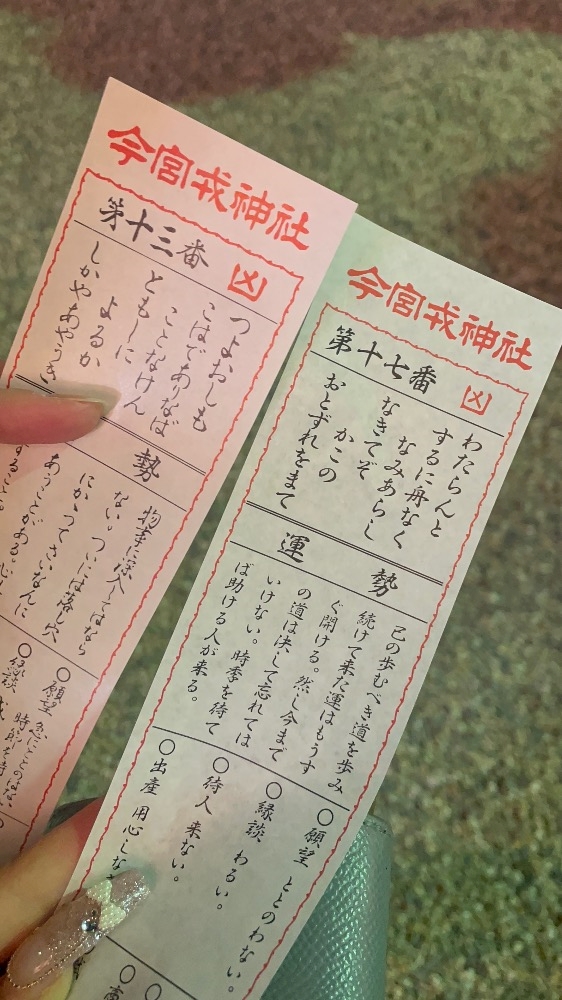 今宮戎神社
第十三番
凶
つよおしも
こはでありなば
ことなけん
ともしに
よるか
しかやあやうき
勢
物事に深入してはなら
ない。ついには落し穴
にかゝつてさいなんに
あうことがある。心
○願望
○縁談
今宮戎神社
第十七番
凶
わたらんと
するに舟なく
なみあらし
なきてぞ
かこの
おとずれをまて
運勢
己の歩むべき道を歩み
続けて来た運はもうす
ぐ開ける。然し今まで
の道は決して忘れては
いけない。時季を待て
ば助ける人が来る。
○願望 ととのわない。
○縁談 わるい。
○待人 来ない。
○出産 用心しな